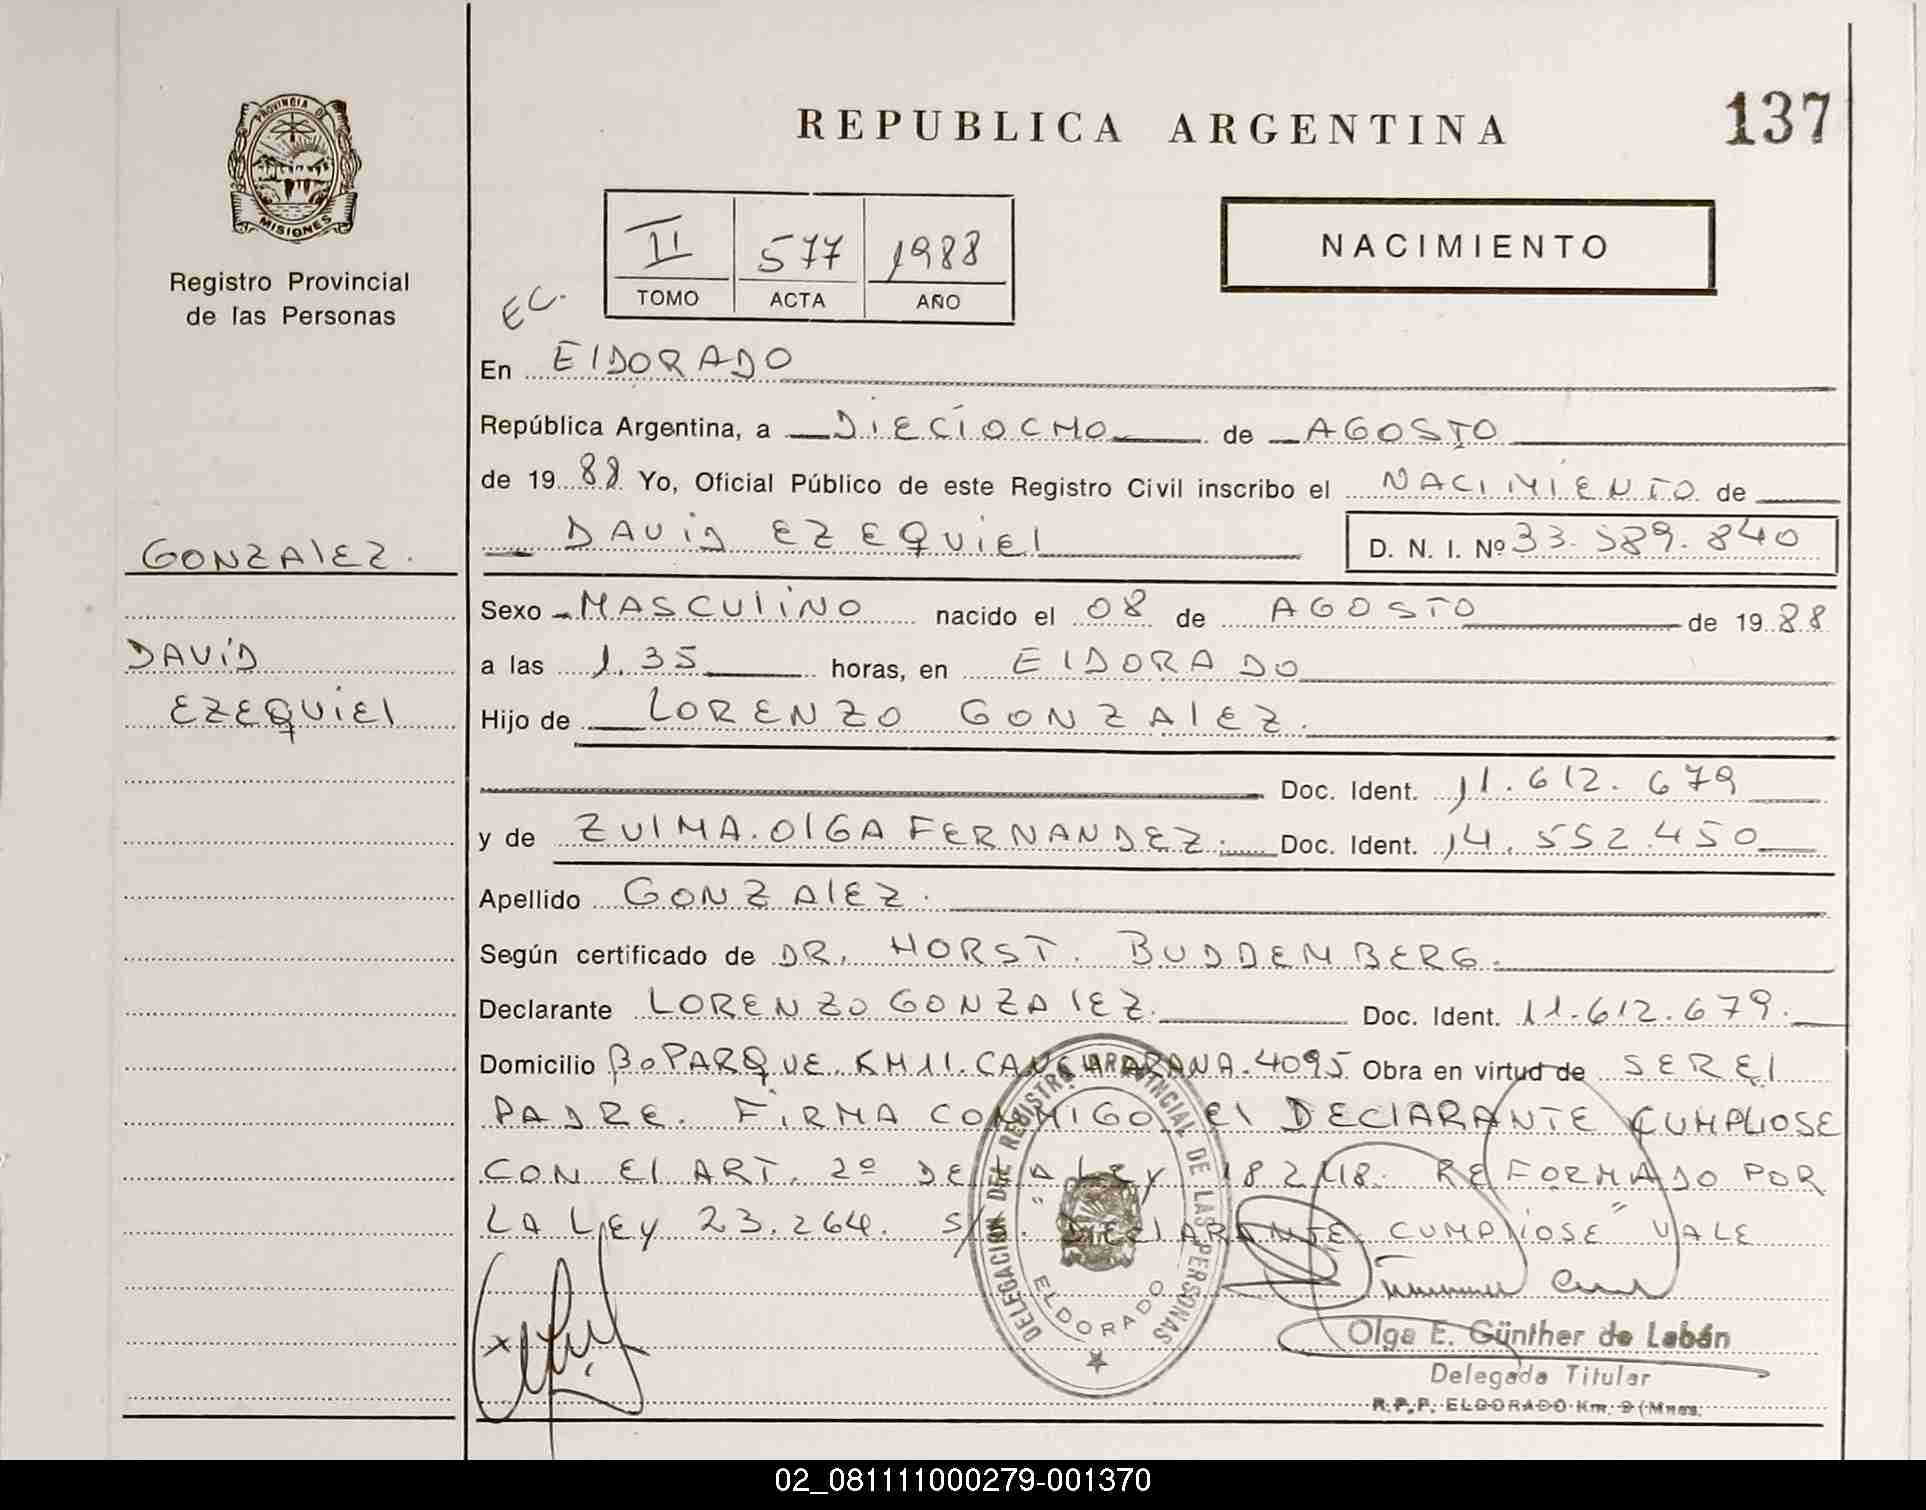 PROVINCIA DE
MISIONES
Registro Provincial
de las Personas
REPUBLICA ARGENTINA
137
II 577 1988
TOMO ACTA AÑO
NACIMIENTO
EC.
En ElDORADO
República Argentina, a DiECiOCHO de AGOSTO
de 19 88 Yo, Oficial Público de este Registro Civil inscribo el NACIMIENTO de
DAViD EZEQUiEl D. N. I. Nº 33.589.840
GONZAlEZ.
Sexo MASCUliNO nacido el 08 de AGOSTO de 19 88
DAViD
a las 1.35 horas, en ElDORADO
EZEQUiEl
Hijo de LORENZO GONZAlEZ.
Doc. Ident. 11.612.679
y de ZUlMA.OlGA FERNANDEZ. Doc. Ident. 14.552.450
Apellido GONZAlEZ.
Según certificado de DR. HORST. BUDDEMBERG.
Declarante LORENZO GONZAlEZ. Doc. Ident. 11.612.679.
Domicilio Bo PARQUE. KM11. 4095 Obra en virtud de SER El
PADRE. FiRMA CONMIGO El DEClARANTE CUMPLIOSE
CON El ART. 2º DE LA LEY 18248. REFORMADO POR
LA LEY 23.264. DEClARANTE. CUMPliOSE" VALE
DELEGACION DEL REGISTRO PROVINCIAL DE LAS PERSONAS
ELDORADO
Olga E. Günther de Labán
Delegada Titular
R.P.P. ELDORADO Km. 9 (Mnes.
02_081111000279-001370